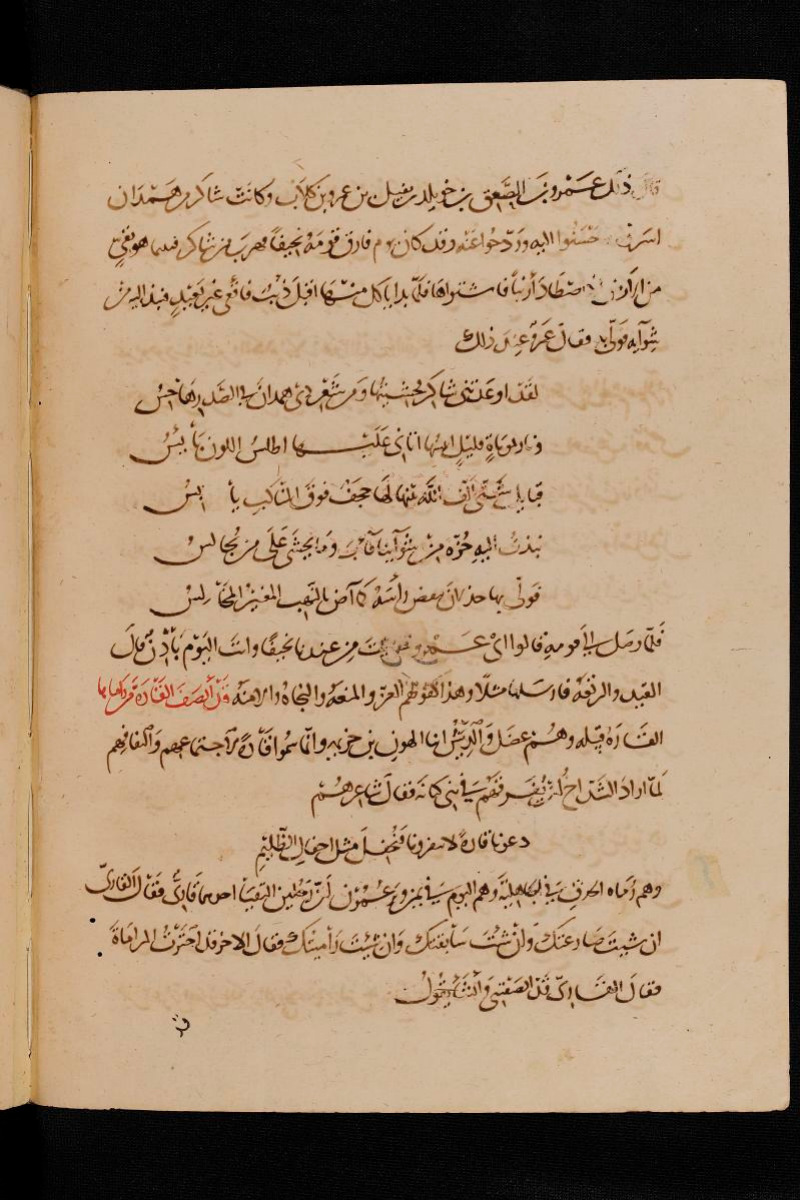 قال ذلك عمرو بن الصعق بن خويلد بن نفيل بن عمرو بن كلاب وكانت شاكر من همدان
اسرته فاحسنوا اليه وروحوا عنه وقد كان يوم فارق قومه نحيفا فهرب من شاكر فبينما هو بقي
من الارض اذ اصطاد أرنبا فاشتواها فلما بدا ياكل منها اقبل ذئب فاقعى غير بعيد فنبذ اليه من
شوائه فولى به فقال عمرو عند ذلك
لقد اوعدتني شاكر فخشيتها ومن شعب ذي همدان في الصدر هاجس
ونار بموماة قليل انيسها اتاني عليها اطلس اللون بائس
قبايل شتى الف الله بينها لها حجف فوق المناكب يابس
نبذت اليه حزة من شوائنا فآب وما يخشى على من يجالس
فولى بها جذلان ينفض رأسه كما آض بالنهب المغير المخالس
فلما وصل الى قومه قالوا اي عمرو خرجت من عندنا نحيفا وانت اليوم بادن قال
القيد والرتعة فارسلها مثلا وهذا كقولهم العز والمنعة والنجاة والامنة قد أنصف القارة من راماها
القارة قبيلة وهم عضل والديش ابنا الهون بن خزيمة وانما سموا قارة لاجتماعهم والتفافهم
لما اراد الشداخ أن يفرقهم في بني كنانة فقال شاعرهم
دعونا قارة لا تنفرونا فنجفل مثل اجفال الظليم
وهم رماة الحدق في الجاهلية وهم اليوم في اليمن ويزعمون أن رجلين التقيا احدهما قاري فقال القاري
ان شيت صارعتك وان شئت سابقتك وان شيت راميتك فقال الاخر قد اخترت المراماة
فقال القاري قد انصفتني وانشأ يقول